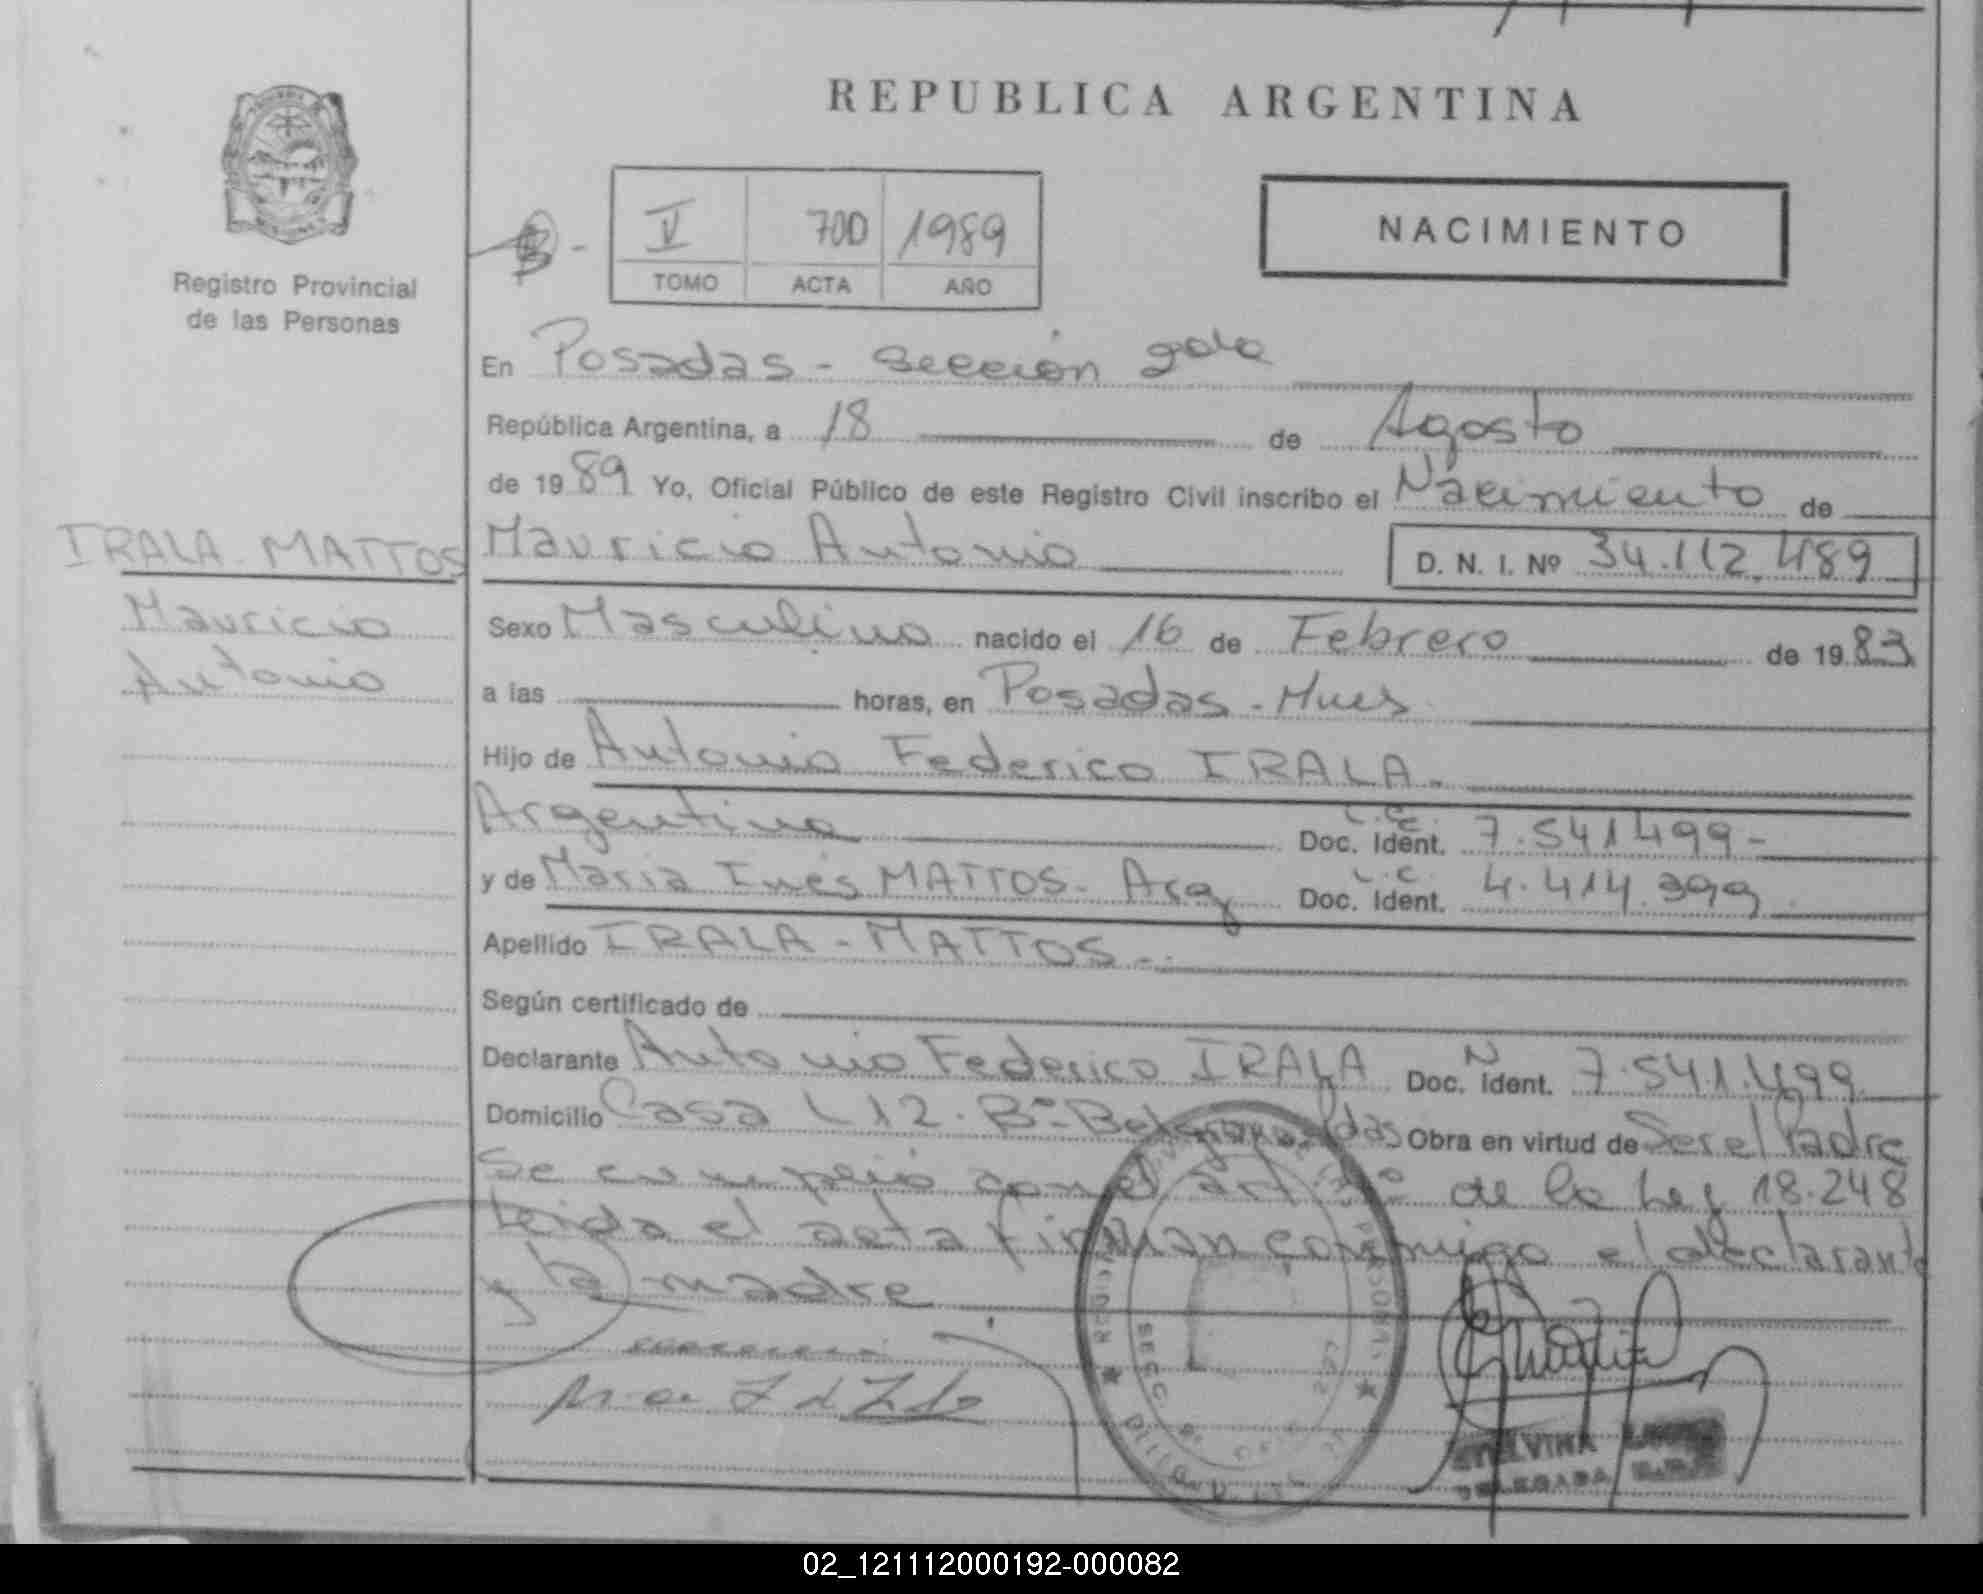 REPUBLICA ARGENTINA
Registro Provincial
de las Personas
V 700 1989
TOMO ACTA AÑO
NACIMIENTO
En Posadas - sección 2da
República Argentina, a 18 de Agosto
de 1989 Yo, Oficial Público de este Registro Civil inscribo el Nacimiento de
IRALA-MATTOS
Mauricio
Antonio
Mauricio Antonio D. N. I. Nº 34.112.489
Sexo Masculino nacido el 16 de Febrero de 1983
a las horas, en Posadas - Mnes
Hijo de Antonio Federico IRALA.
Argentino Doc. Ident. L.E. 7.541499-
y de Maria Inés MATTOS - Arg Doc. Ident. L.C. 4.414.399
Apellido IRALA-MATTOS-.
Según certificado de
Declarante Antonio Federico IRALA Doc. Ident. N 7.541.499
Domicilio Casa 12. Bº Belgrano Pdas Obra en virtud de Ser el Padre
Se cumplió con el art de la Ley 18.248
leida el acta firman conmigo el declarante
y la madre
SECC.
DELEGADA
02_121112000192-000082